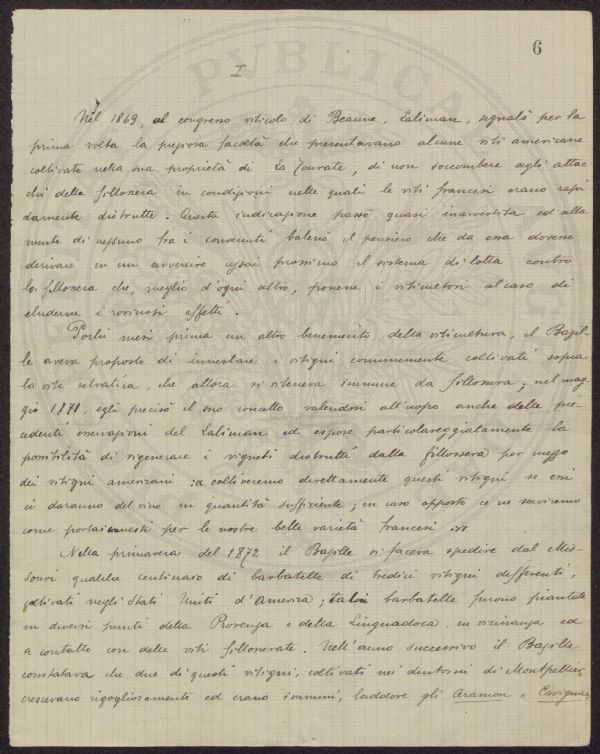 6
I
Nel 1869, al congresso viticolo di Beaune, Laliman, segnalò per la
prima volta la preziosa facoltà che presentavano alcune viti americane
coltivate nella sua proprietà di La Tourate, di non soccombere agli attac
chi della fillossera in condizioni nelle quali le viti francesi erano rapi
damente distrutte. Questa indicazione passò quasi inavvertita ed alla
mente di nessuno fra i convenuti balenò il pensiero che da essa dovesse
derivare in un avvenire assai prossimo il sistema di lotta contro
la fillossera che, meglio d'ogni altro, ponesse i viticultori al caso di
eluderne i rovinosi effetti.
Pochi mesi prima un altro benemerito della viticultura, il Bazil-
le aveva proposto di innestare i vitigni comunemente coltivati sopra
la vite selvatica, che allora si riteneva immune da fillossera; nel mag-
gio 1871, egli precisò il suo concetto valendosi all'uopo anche delle pre-
cedenti osservazioni del Laliman ed espose particolareggiatamente la
possibilità di rigenerare i vigneti distrutti dalla fillossera per mezzo
dei vitigni americani: « coltiveremo direttamente questi vitigni se essi
ci daranno del vino in quantità sufficiente; in caso opposto ce ne serviremo
come portainnesti per le nostre belle varietà francesi ».
Nella primavera del 1872 il Bazille si faceva spedire dal Mis-
souri qualche centinaio di barbatelle di tredici vitigni differenti,
coltivati negli Stati Uniti d'America; tali barbatelle furono piantate
in diversi punti della Provenza e della Linguadoca, in vicinanza ed
a contatto con delle viti fillosserate. Nell'anno successivo il Bazille
constatava che due di questi vitigni, coltivati nei dintorni di Montpellier,
crescevano rigogliosamente ed erano immuni, laddove gli Aramon e Carignan
PUBLICA